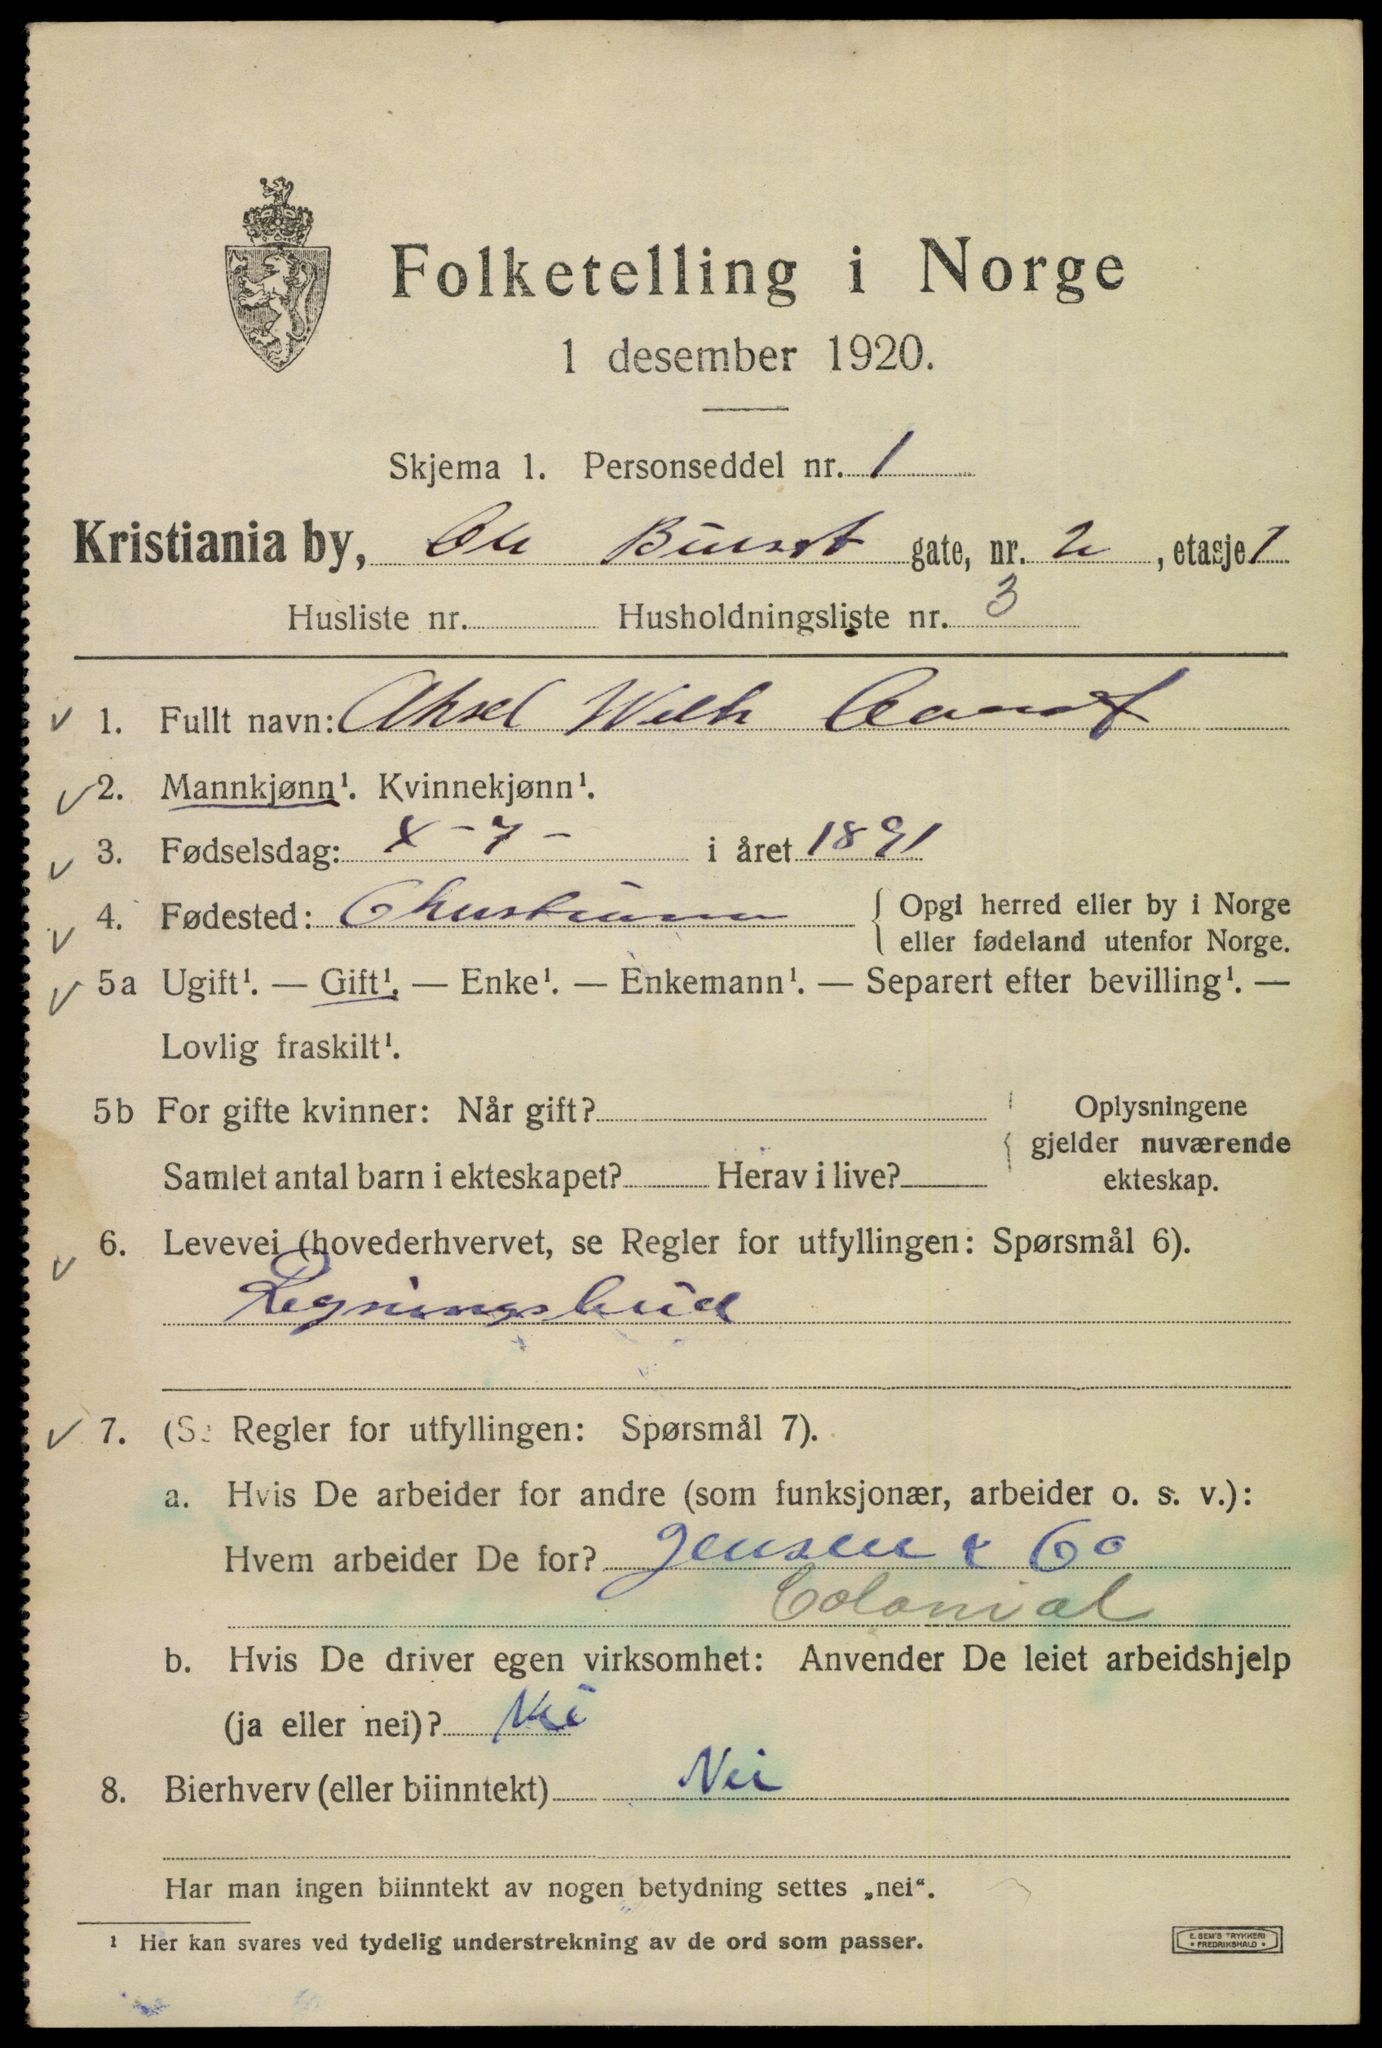 Folketelling i Norge
1 desember 1920.
Skjema 1. Personseddel nr. 1
Kristiania by, Ole Buset gate, nr. 2 , etasje 1
Husliste nr. Husholdningsliste nr. 3
1. Fullt navn: Aksel Wilh
2. Mannkjønn¹. Kvinnekjønn¹.
3. Fødselsdag: X - 7 - i året 1891
4. Fødested: Christiania { Opgi herred eller by i Norge
eller fødeland utenfor Norge.
5a Ugift¹. — Gift¹. — Enke¹. — Enkemann¹. — Separert efter bevilling¹. —
Lovlig fraskilt¹.
5b For gifte kvinner: Når gift? Oplysningene
gjelder nuværende
Samlet antal barn i ekteskapet? Herav i live? ekteskap.
6. Levevei (hovederhvervet, se Regler for utfyllingen: Spørsmål 6).
Regningsbud
7. (Se Regler for utfyllingen: Spørsmål 7).
a. Hvis De arbeider for andre (som funksjonær, arbeider o. s. v.):
Hvem arbeider De for? Jensen & Co
Colonial
b. Hvis De driver egen virksomhet: Anvender De leiet arbeidshjelp
(ja eller nei)? Nei
8. Bierhverv (eller biinntekt) Nei
Har man ingen biinntekt av nogen betydning settes „nei".
¹ Her kan svares ved tydelig understrekning av de ord som passer.
E. SEM'S TRYKKERI
• FREDRIKSHALD •